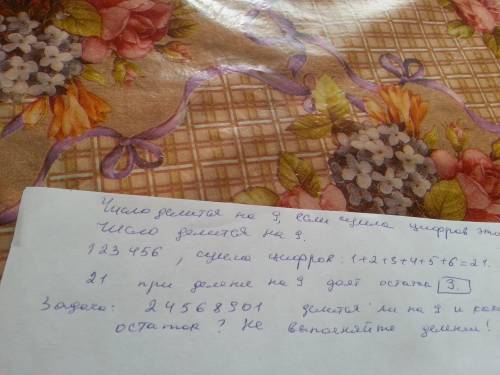 Число делится на 9, если сумма цифров это
число делится на 9.
123456, сумма цифров: 1+2+3+4+5+6=21.
21 при деление на 9 даёт остаток 3.
Задача: 24568901 делится ли на 9 и како
остаток? Не выполняйте делении!